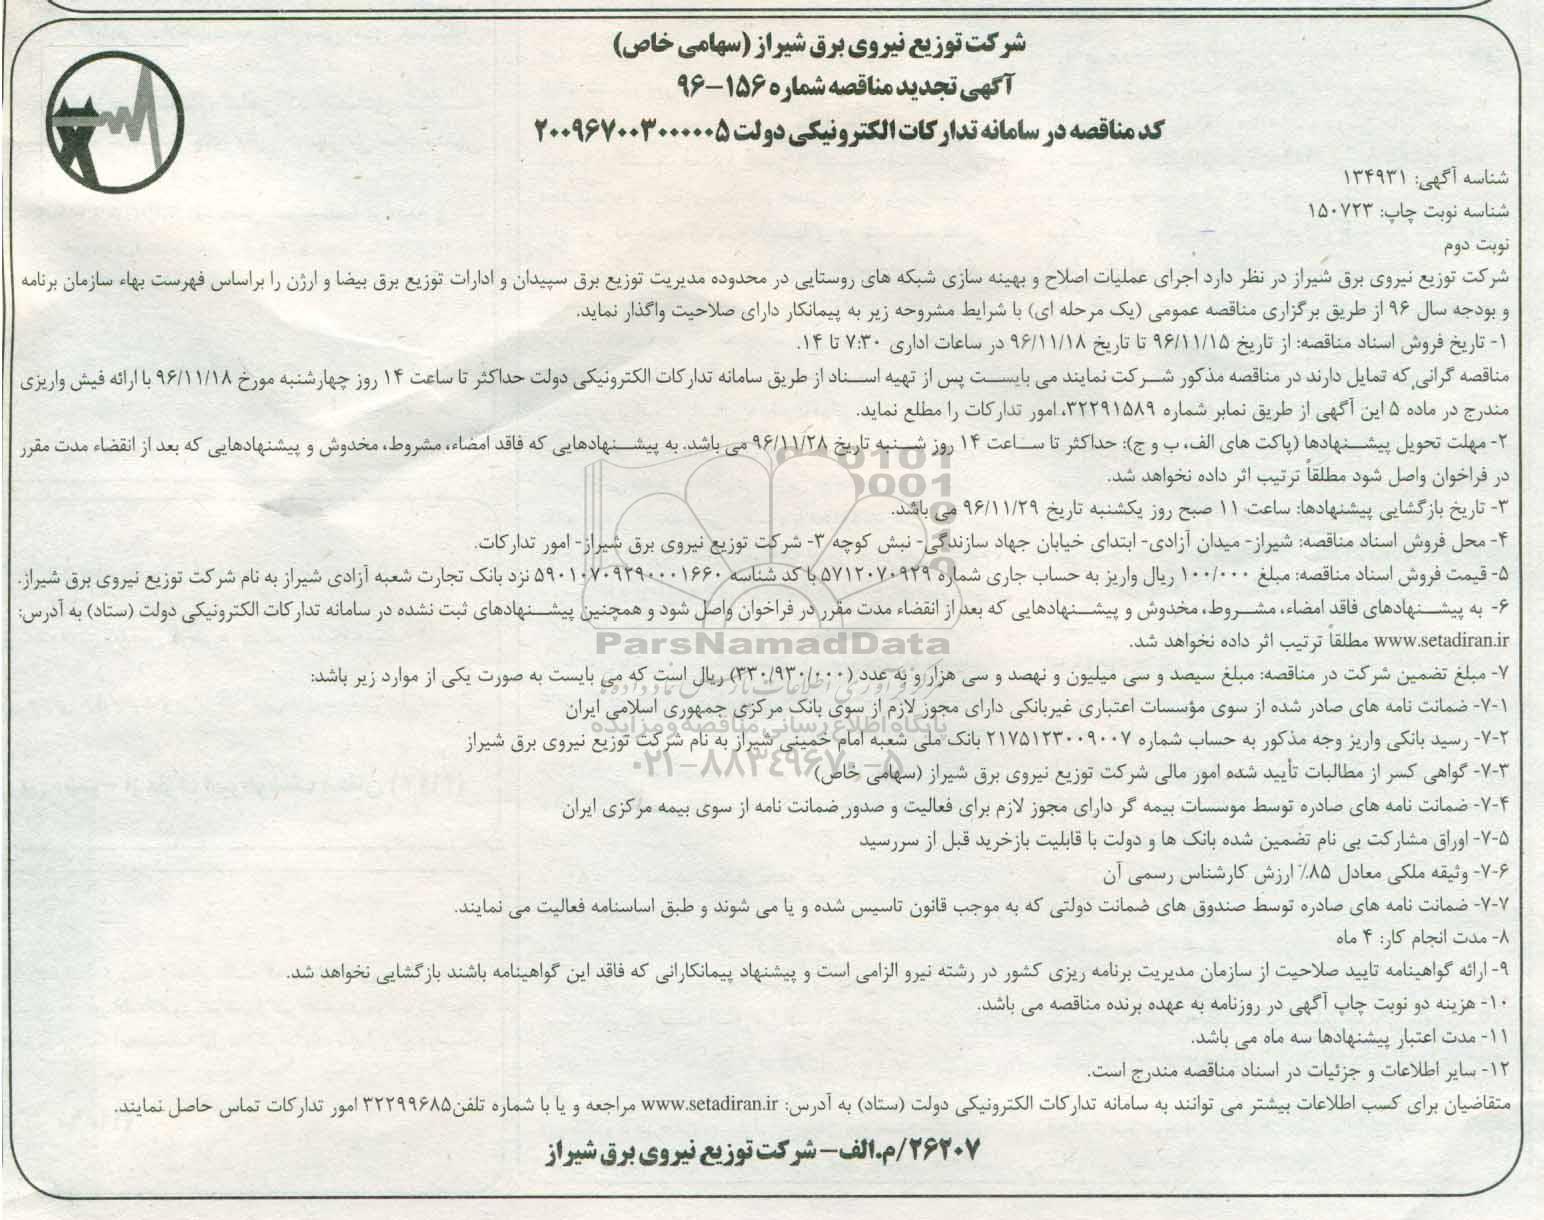 شرکت توزیع نیروی برق شیراز (سهامی خاص)
آگهی تجدید مناقصه شماره ۱۵۶-۹۶
کد مناقصه در سامانه تدارکات الکترونیکی دولت ۲۰۰۹۶۷۰۰۳۰۰۰۰۰۵
شناسه آگهی: ۱۳۴۹۳۱
شناسه نوبت چاپ: ۱۵۰۷۲۳
نوبت دوم
شرکت توزیع نیروی برق شیراز در نظر دارد اجرای عملیات اصلاح و بهینه سازی شبکه های روستایی در محدوده مدیریت توزیع برق سپیدان و ادارات توزیع برق بیضا و ارژن را براساس فهرست بهاء سازمان برنامه
و بودجه سال ۹۶ از طریق برگزاری مناقصه عمومی (یک مرحله ای) با شرایط مشروحه زیر به پیمانکار دارای صلاحیت واگذار نماید.
۱- تاریخ فروش اسناد مناقصه: از تاریخ ۹۶/۱۱/۱۵ تا تاریخ ۹۶/۱۱/۱۸ در ساعات اداری ۷:۳۰ تا ۱۴.
مناقصه گرانی که تمایل دارند در مناقصه مذکور شرکت نمایند می بایست پس از تهیه اسناد از طریق سامانه تدارکات الکترونیکی دولت حداکثر تا ساعت ۱۴ روز چهارشنبه مورخ ۹۶/۱۱/۱۸ با ارائه فیش واریزی
مندرج در ماده ۵ این آگهی از طریق نمابر شماره ۳۲۲۹۱۵۸۹، امور تدارکات را مطلع نماید.
۲- مهلت تحویل پیشنهادها (پاکت های الف، ب و ج): حداکثر تا ساعت ۱۴ روز شنبه تاریخ ۹۶/۱۱/۲۸ می باشد. به پیشنهادهایی که فاقد امضاء، مشروط، مخدوش و پیشنهادهایی که بعد از انقضاء مدت مقرر
در فراخوان واصل شود مطلقاً ترتیب اثر داده نخواهد شد.
۳- تاریخ بازگشایی پیشنهادها: ساعت ۱۱ صبح روز یکشنبه تاریخ ۹۶/۱۱/۲۹ می باشد.
۴- محل فروش اسناد مناقصه: شیراز- میدان آزادی- ابتدای خیابان جهاد سازندگی- نبش کوچه ۳- شرکت توزیع نیروی برق شیراز- امور تدارکات.
۵- قیمت فروش اسناد مناقصه: مبلغ ۱۰۰/۰۰۰ ریال واریز به حساب جاری شماره ۵۷۱۲۰۷۰۹۲۹ با کد شناسه ۵۹۰۱۰۷۰۹۲۹۰۰۰۱۶۶۰ نزد بانک تجارت شعبه آزادی شیراز به نام شرکت توزیع نیروی برق شیراز.
۶- به پیشنهادهای فاقد امضاء، مشروط، مخدوش و پیشنهادهایی که بعد از انقضاء مدت مقرر در فراخوان واصل شود و همچنین پیشنهادهای ثبت نشده در سامانه تدارکات الکترونیکی دولت (ستاد) به آدرس:
www.setadiran.ir مطلقاً ترتیب اثر داده نخواهد شد.
ParsNamadData
۷- مبلغ تضمین شرکت در مناقصه: مبلغ سیصد و سی میلیون و نهصد و سی هزار و به عدد (۳۳۰/۹۳۰/۰۰۰) ریال است که می بایست به صورت یکی از موارد زیر باشد:
۷-۱- ضمانت نامه های صادر شده از سوی مؤسسات اعتباری غیربانکی دارای مجوز لازم از سوی بانک مرکزی جمهوری اسلامی ایران
پایگاه اطلاع رسانی مناقصه و مزایده
۷-۲- رسید بانکی واریز وجه مذکور به حساب شماره ۲۱۷۵۱۲۳۰۰۹۰۰۷ بانک ملی شعبه امام خمینی شیراز به نام شرکت توزیع نیروی برق شیراز
۰۲۱-۸۸۳۴۹۶۷۰-۵
۷-۳- گواهی کسر از مطالبات تأیید شده امور مالی شرکت توزیع نیروی برق شیراز (سهامی خاص)
۷-۴- ضمانت نامه های صادره توسط موسسات بیمه گر دارای مجوز لازم برای فعالیت و صدور ضمانت نامه از سوی بیمه مرکزی ایران
۷-۵- اوراق مشارکت بی نام تضمین شده بانک ها و دولت با قابلیت بازخرید قبل از سررسید
۷-۶- وثیقه ملکی معادل ۸۵٪ ارزش کارشناس رسمی آن
۷-۷- ضمانت نامه های صادره توسط صندوق های ضمانت دولتی که به موجب قانون تاسیس شده و یا می شوند و طبق اساسنامه فعالیت می نمایند.
۸- مدت انجام کار: ۴ ماه
۹- ارائه گواهینامه تایید صلاحیت از سازمان مدیریت برنامه ریزی کشور در رشته نیرو الزامی است و پیشنهاد پیمانکارانی که فاقد این گواهینامه باشند بازگشایی نخواهد شد.
۱۰- هزینه دو نوبت چاپ آگهی در روزنامه به عهده برنده مناقصه می باشد.
۱۱- مدت اعتبار پیشنهادها سه ماه می باشد.
۱۲- سایر اطلاعات و جزئیات در اسناد مناقصه مندرج است.
متقاضیان برای کسب اطلاعات بیشتر می توانند به سامانه تدارکات الکترونیکی دولت (ستاد) به آدرس: www.setadiran.ir مراجعه و یا با شماره تلفن ۳۲۲۹۹۶۸۵ امور تدارکات تماس حاصل نمایند.
۲۶۲۰۷/م.الف- شرکت توزیع نیروی برق شیراز